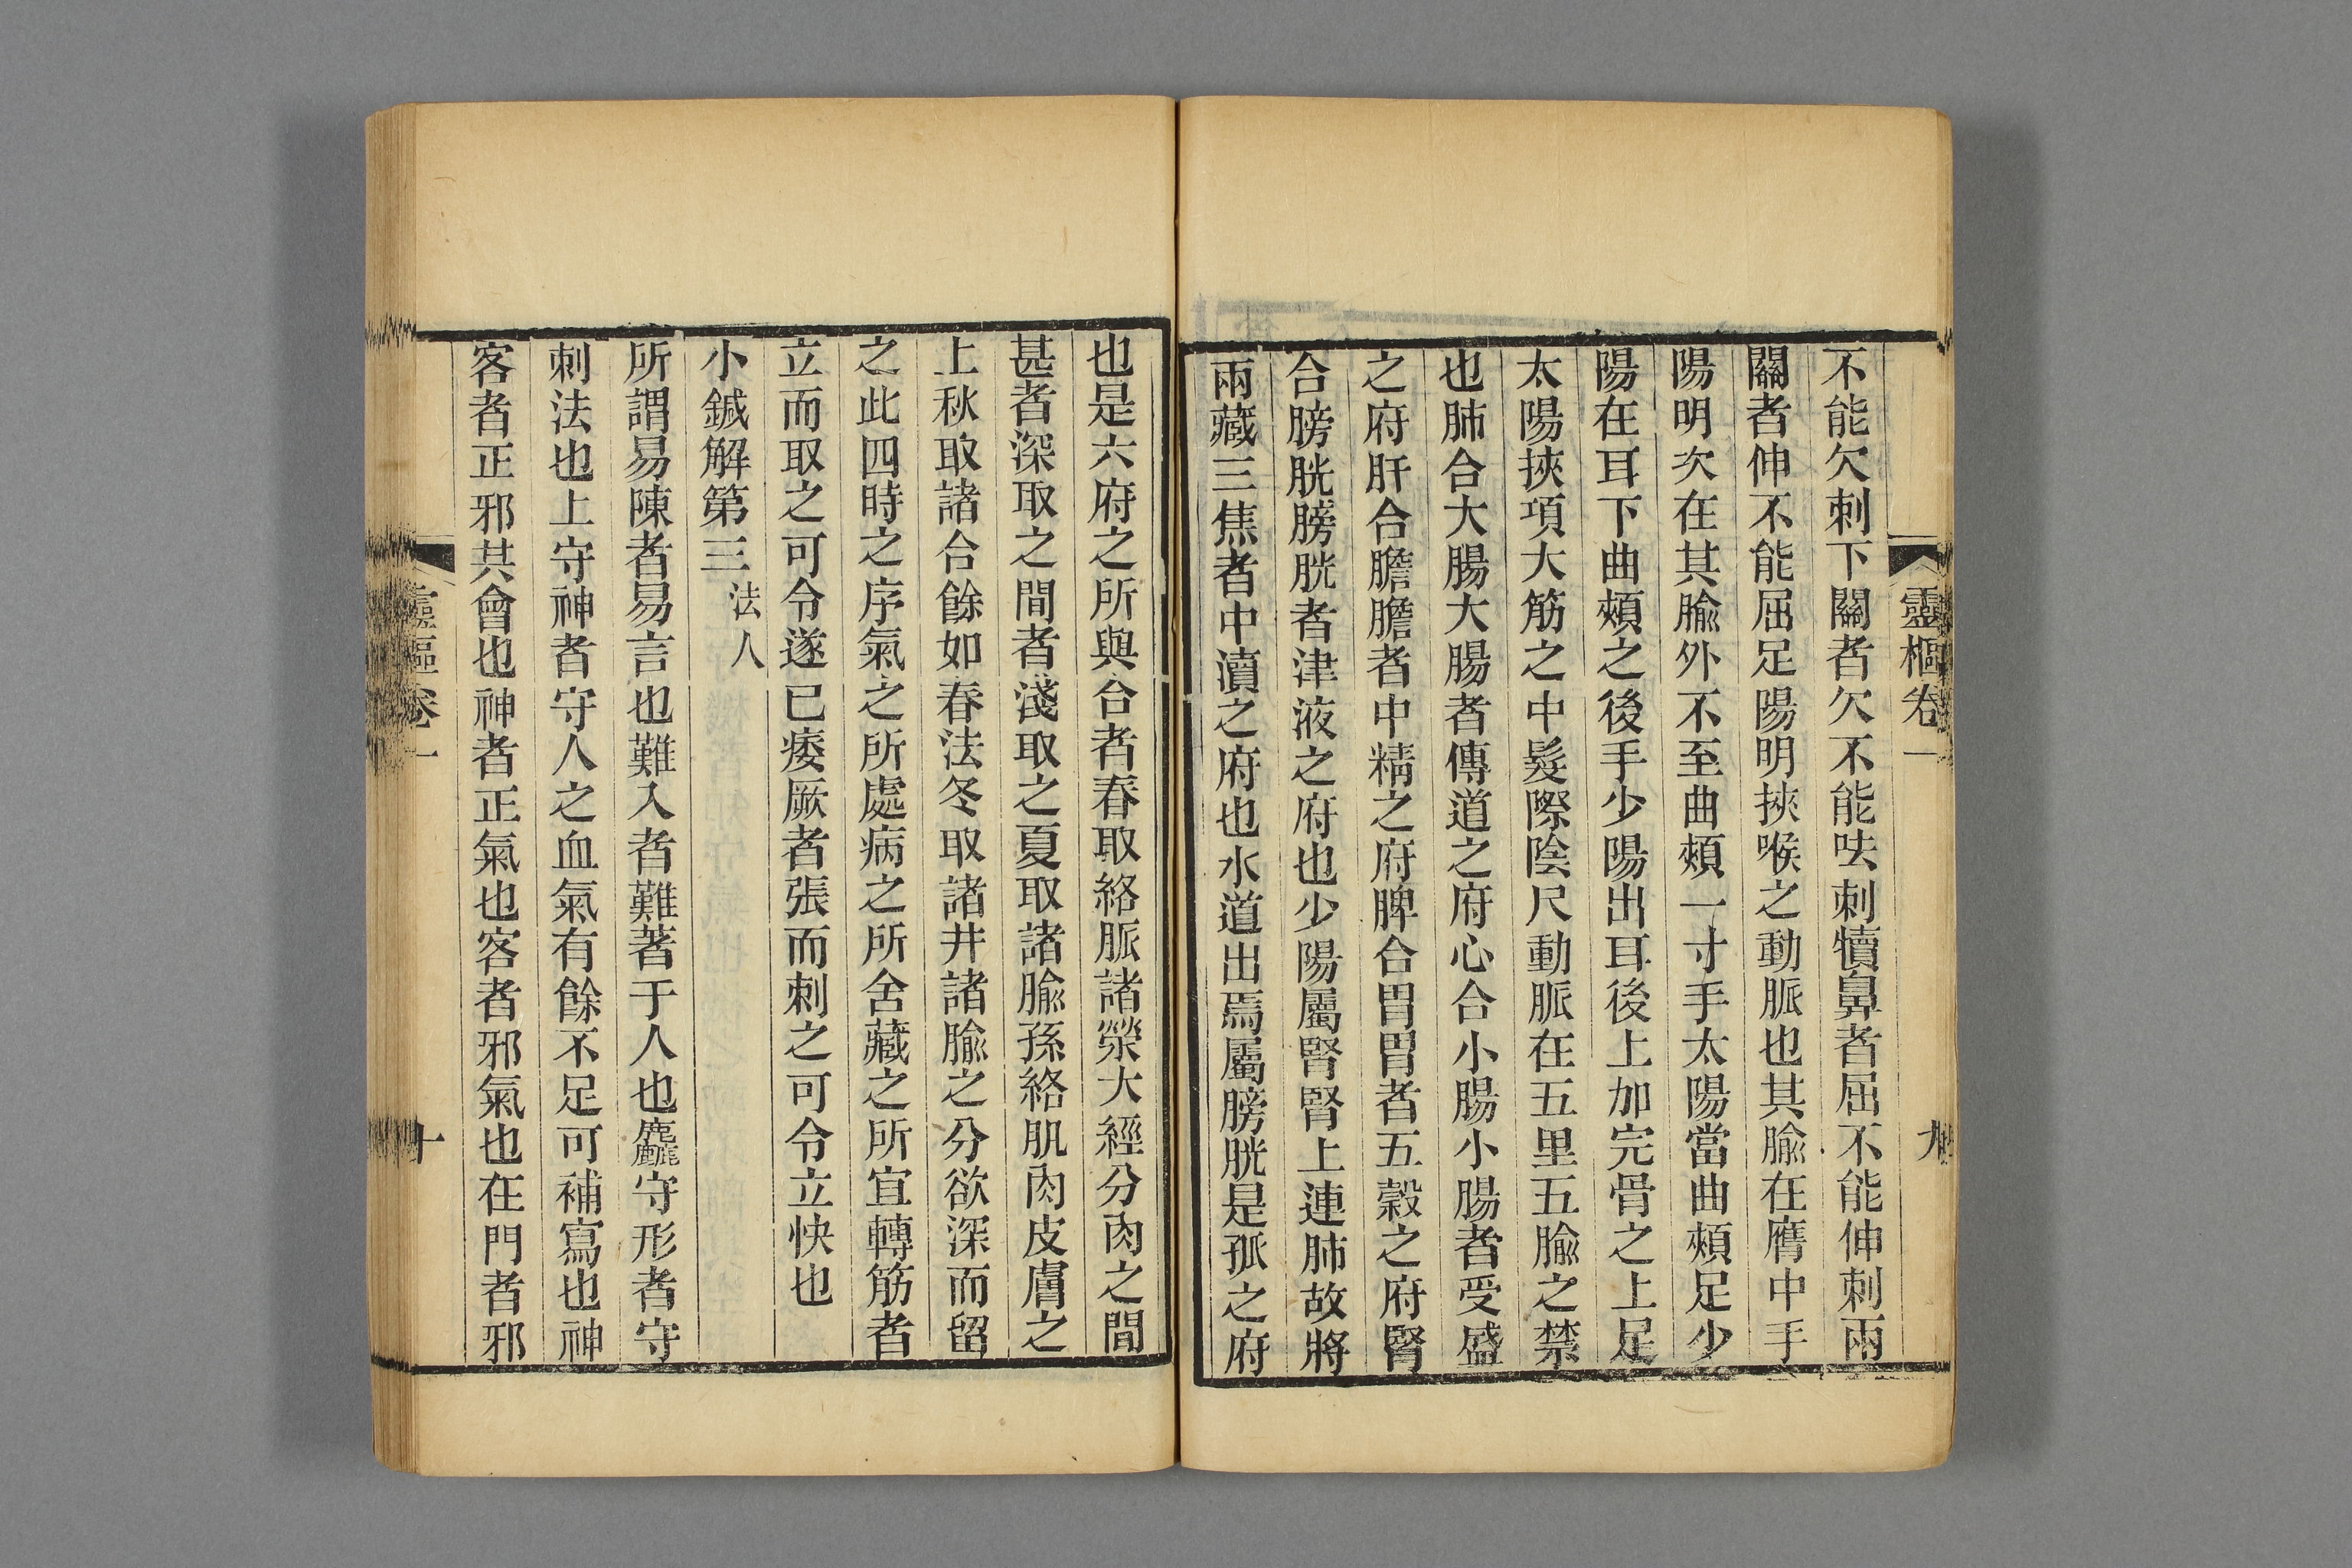 靈樞卷一
九
不能欠刺下關者欠不能呿刺犢鼻者屈不能伸刺兩
關者伸不能屈足陽明挾喉之動脈也其腧在膺中手
陽明次在其腧外不至曲頰一寸手太陽當曲頰足少
陽在耳下曲頰之後手少陽出耳後上加完骨之上足
太陽挾項大筋之中髮際陰尺動脈在五里五腧之禁
也肺合大腸大腸者傳道之府心合小腸小腸者受盛
之府肝合膽膽者中精之府脾合胃胃者五穀之府腎
合膀胱膀胱者津液之府也少陽屬腎腎上連肺故將
兩藏三焦者中瀆之府也水道出焉屬膀胱是孤之府
也是六府之所與合者春取絡脈諸滎大經分肉之間
甚者深取之間者淺取之夏取諸腧孫絡肌肉皮膚之
上秋取諸合餘如春法冬取諸井諸腧之分欲深而留
之此四時之序氣之所處病之所舍藏之所宜轉筋者
立而取之可令遂已痿厥者張而刺之可令立快也
小鍼解第三 法人
所謂易陳者易言也難入者難著于人也麤守形者守
刺法也上守神者守人之血氣有餘不足可補寫也神
客者正邪共會也神者正氣也客者邪氣也在門者邪
靈樞卷一
十